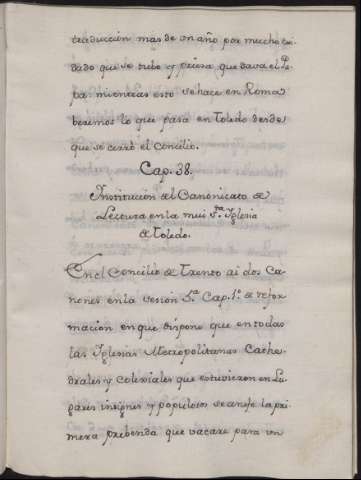 traducción mas de un año por mucho cui-
dado que se tubo y priesa que dava el Pa-
pa: mientras esto se hace en Roma
beremos lo que pasa en Toledo desde
que se cerró el Concilio.
Cap. 38.
Institución del Canonicato de
Lectura en la mui S.ta Iglesia
de Toledo.
En el Concilio de Trento ai dos Ca-
nones en la Sesión 5.a Cap. 1.o de refor
macion en que dispone que en todas
las Iglesias Metropolitanas Cathe-
drales y Colexiales que estuvieren en Lu-
gares insignes y populosos se anexe la pri-
mera prebenda que vacare para un